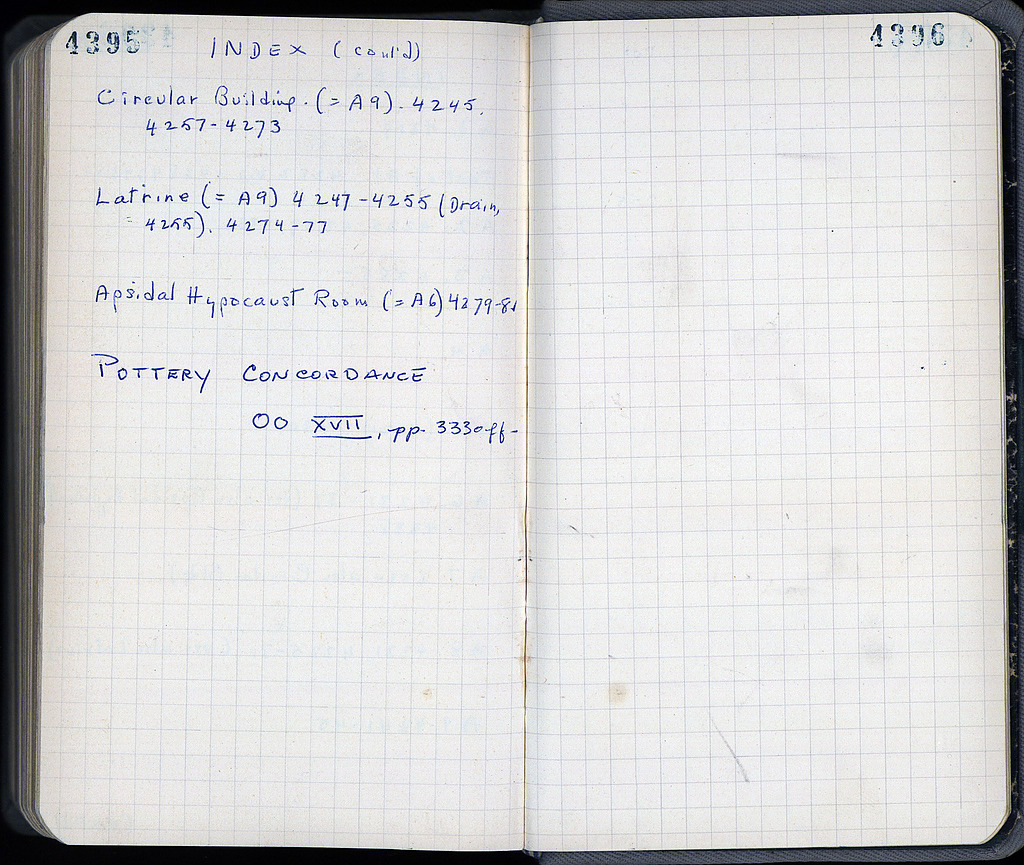 4395
INDEX (cont'd)
Circular Building. (= A9). 4245.
4257-4273
Latrine (= A9) 4247-4255 (Drain,
= 4255). 4274-77
Apsidal Hypocaust Room (= A6) 4279-81
POTTERY CONCORDANCE
OO XVII, pp. 3330ff-
4396